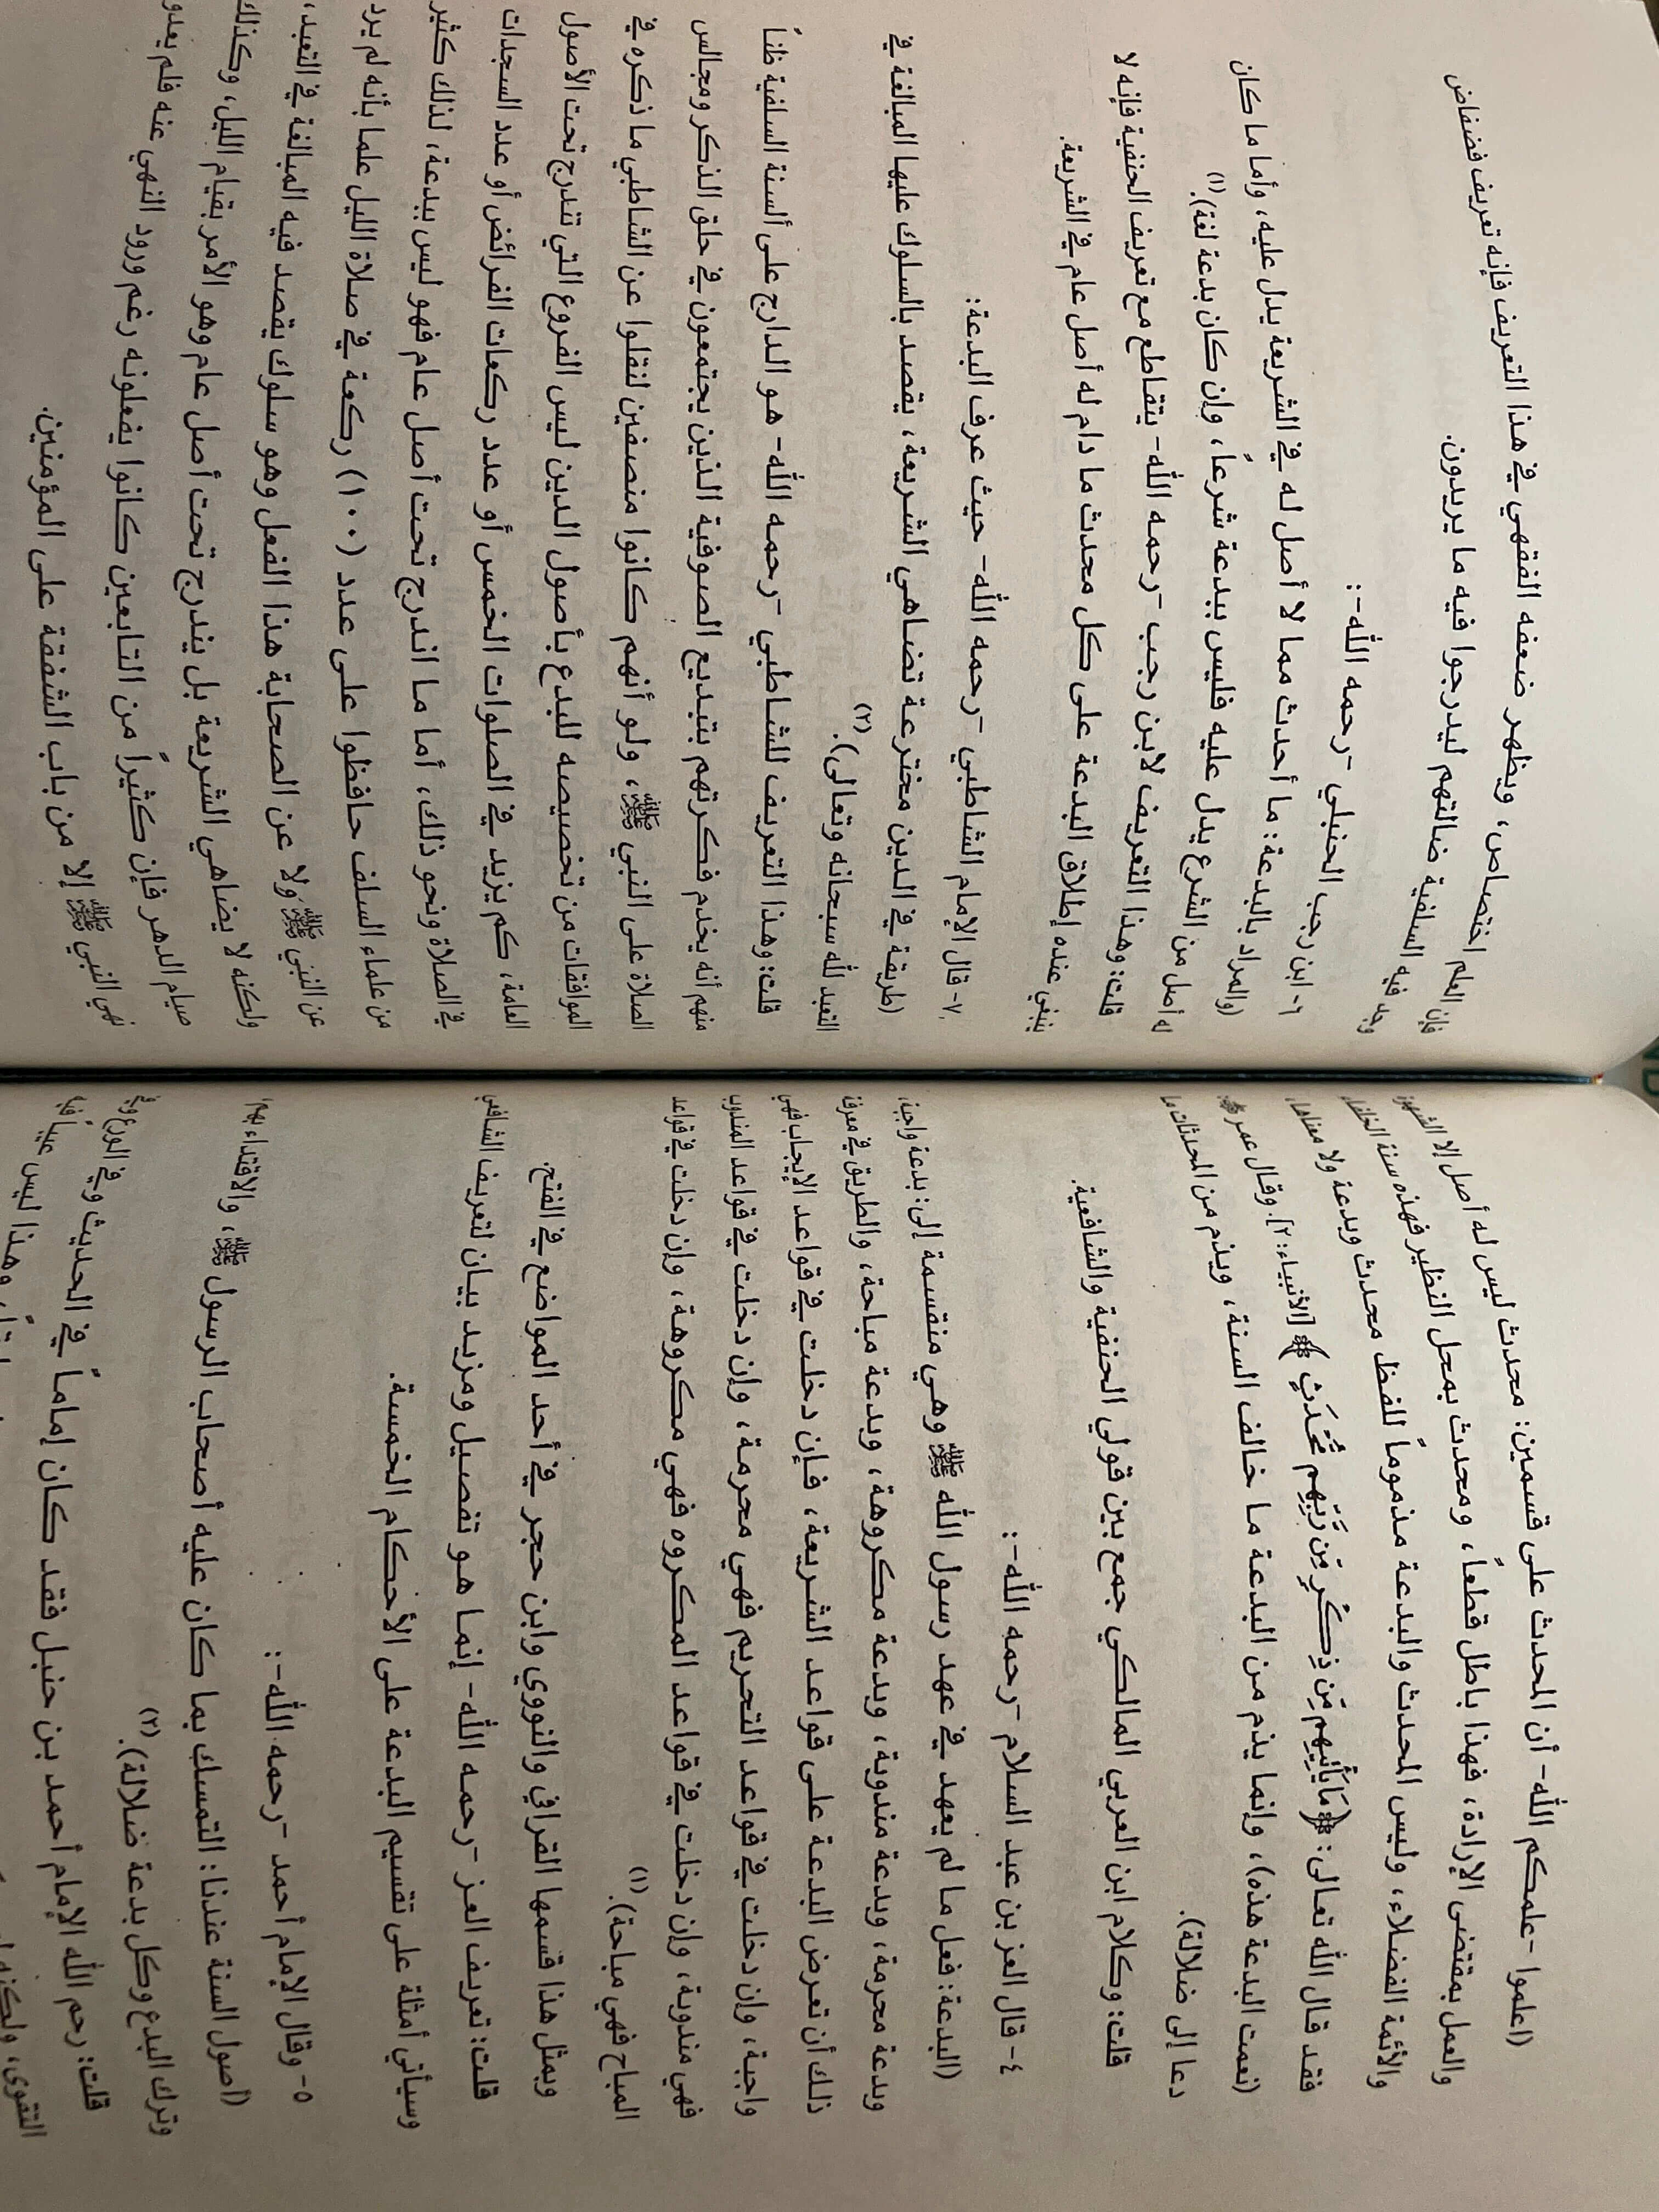 (اعلموا –علمكم الله– أن المحدث على قسمين: محدث ليس له أصل إلا الشهوة
والعمل بمقتضى الإرادة، فهذا باطل قطعاً، ومحدث بحمل النظير فهذه سنة الخلفاء
والأئمة الفضلاء، وليس المحدث والبدعة مذموماً للفظ محدث وبدعة ولا معناها،
فقد قال الله تعالى: ﴿مَا يَأْتِيهِم مِّن ذِكْرٍ مِّن رَّبِّهِم مُّحْدَثٍ﴾ [الأنبياء: ٢]. وقال عمر
(نعمت البدعة هذه)، وإنما يذم من البدعة ما خالف السنة، ويذم من المحدثات ما
دعا إلى ضلالة).
قلت: وكلام ابن العربي المالكي جمع بين قولي الحنفية والشافعية.
٤- قال العز بن عبد السلام –رحمه الله–:
(البدعة: فعل ما لم يعهد في عهد رسول الله ﷺ وهي منقسمة إلى: بدعة واجبة،
وبدعة محرمة، وبدعة مندوبة، وبدعة مكروهة، وبدعة مباحة، والطريق في معرفة
ذلك أن تعرض البدعة على قواعد الشريعة، فإن دخلت في قواعد الإيجاب فهي
واجبة، وإن دخلت في قواعد التحريم فهي محرمة، وإن دخلت في قواعد المندوب
فهي مندوبة، وإن دخلت في قواعد المكروه فهي مكروهة، وإن دخلت في قواعد
المباح فهي مباحة).(١)
وبمثل هذا قسمها القرافي والنووي وابن حجر في أحد المواضع في الفتح.
قلت: تعريف العز –رحمه الله– إنما هو تفصيل ومزيد بيان لتعريف الشافعي
وسيأتي أمثلة على تقسيم البدعة على الأحكام الخمسة.
٥- وقال الإمام أحمد –رحمه الله–:
(أصول السنة عندنا: التمسك بما كان عليه أصحاب الرسول ﷺ، والاقتداء بهم،
وترك البدع وكل بدعة ضلالة).(٢)
قلت: رحم الله الإمام أحمد بن حنبل فقد كان إماماً في الحديث وفي الورع وفي
التقوى، ولكنه وهذا ليس عيباً فيه
فإن العلم اختصاص، ويظهر ضعفه الفقهي في هذا التعريف فإنه تعريف فضفاض
وجد فيه السلفية ضالتهم ليدرجوا فيه ما يريدون.
٦- ابن رجب الحنبلي –رحمه الله–:
(والمراد بالبدعة: ما أحدث مما لا أصل له في الشريعة يدل عليه، وأما ما كان
له أصل من الشرع يدل عليه فليس ببدعة شرعاً، وإن كان بدعة لغة).(١)
قلت: وهذا التعريف لابن رجب –رحمه الله– يتقاطع مع تعريف الحنفية فإنه لا
ينبغي عنده إطلاق البدعة على كل محدث ما دام له أصل عام في الشريعة.
٧- قال الإمام الشاطبي –رحمه الله– حيث عرف البدعة:
(طريقة في الدين مخترعة تضاهي الشريعة، يقصد بالسلوك عليها المبالغة في
التعبد لله سبحانه وتعالى).(٢)
قلت: وهذا التعريف للشاطبي –رحمه الله– هو الدارج على ألسنة السلفية ظناً
منهم أنه يخدم فكرتهم بتبديع الصوفية الذين يجتمعون في حلق الذكر ومجالس
الصلاة على النبي ﷺ، ولو أنهم كانوا منصفين لنقلوا عن الشاطبي ما ذكره في
الموافقات من تخصيصه للبدع بأصول الدين ليس الفروع التي تندرج تحت الأصول
العامة، كم يزيد في الصلوات الخمس أو عدد ركعات الفرائض أو عدد السجدات
في الصلاة ونحو ذلك، أما ما اندرج تحت أصل عام فهو ليس ببدعة، لذلك كثير
من علماء السلف حافظوا على عدد (١٠٠) ركعة في صلاة الليل علما بأنه لم يرد
عن النبي ﷺ ولا عن الصحابة هذا الفعل وهو سلوك يقصد فيه المبالغة في التعبد،
ولكنه لا يضاهي الشريعة بل يندرج تحت أصل عام وهو الأمر بقيام الليل، وكذلك
صيام الدهر فإن كثيراً من التابعين كانوا يفعلونه رغم ورود النهي عنه فلم يعدو
نهي النبي ﷺ إلا من باب الشفقة على المؤمنين.